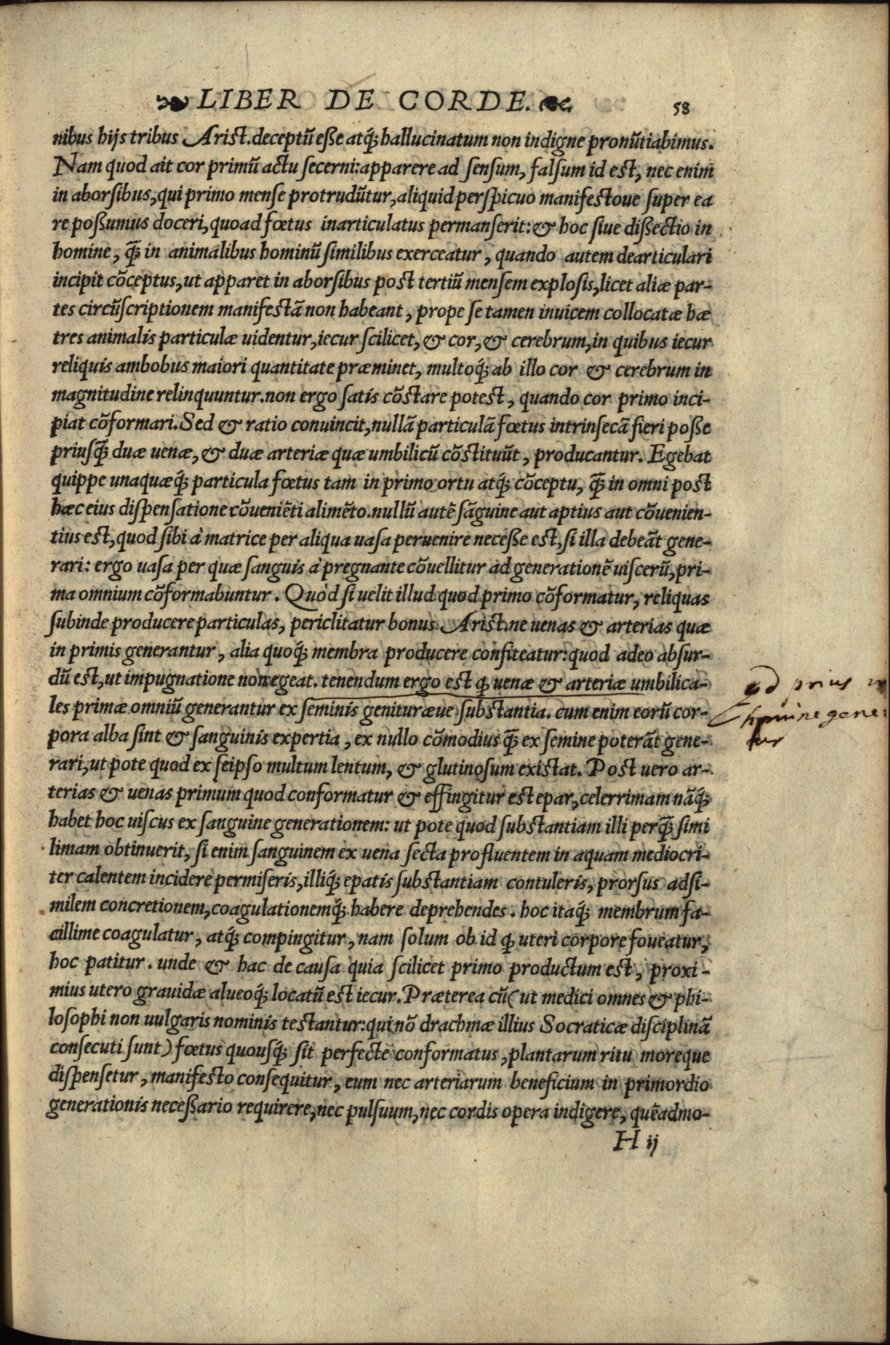 LIBER DE CORDE. 58
nibus hijs tribus Arist.deceptũ eſſe atq́ꝫ hallucinatum non indigne pronũtiabimus.
Nam quod ait cor primũ actu ſecerni:apparere ad ſenſum, falſum id eſt, nec enim
in aborſibus,qui primo menſe protrudũtur,aliquid perſpicuo manifeſtoue ſuper ea
re poſſumus doceri,quoad fœtus inarticulatus permanſerit:& hoc ſiue diſſectio in
homine, q̃ꝫ in animalibus hominũ ſimilibus exerceatur, quando autem dearticulari
incipit cõceptus,ut apparet in aborſibus poſt tertiũ menſem exploſis,licet aliæ par-
tes circũſcriptionem manifeſtã non habeant, prope ſe tamen inuicem collocatæ hæ
tres animalis particulæ uidentur,iecur ſcilicet,& cor,& cerebrum,in quibus iecur
reliquis ambobus maiori quantitate præminet, multoq́ꝫ ab illo cor & cerebrum in
magnitudine relinquuntur.non ergo ſatis cõſtare poteſt, quando cor primo inci-
piat cõformari.Sed & ratio conuincit,nullã particulã fœtus intrinſecã fieri poſſe
priuſq̃ꝫ duæ uenæ,& duæ arteriæ quæ umbilicũ cõſtituũt, producantur. Egebat
quippe unaquæq́ꝫ particula fœtus tam in primo ortu atq́ꝫ cõceptu, q̃ꝫ in omni poſt
hæc eius diſpenſatione cõueniẽti alimẽto.nullũ autẽ ſãguine aut aptius aut cõuenien-
tius eſt,quod ſibi à matrice per aliqua uaſa peruenire neceſſe eſt,ſi illa debeãt gene-
rari: ergo uaſa per quæ ſanguis à pregnante cõuellitur ad generationẽ uiſcerũ,pri-
ma omnium cõformabuntur. Quòd ſi uelit illud quod primo cõformatur, reliquas
ſubinde producere particulas, periclitatur bonus Ariſt.ne uenas & arterias quæ
in primis generantur, alia quoq́ꝫ membra producere confiteatur:quod adeo abſur-
dũ eſt,ut impugnatione non egeat. tenendum ergo eſt ꝙ uenæ & arteriæ umbilica-
les primæ omniũ generantur ex ſeminis genituræue ſubſtantia. cum enim eorũ cor-
pora alba ſint & ſanguinis expertia, ex nullo cõmodius q̃ꝫ ex ſemine poterãt gene-
rari,ut pote quod ex ſeipſo multum lentum, & glutinoſum exiſtat. Poſt uero ar-
terias & uenas primum quod conformatur & effingitur eſt epar,celerrimam nãq́ꝫ
habet hoc uiſcus ex ſanguine generationem: ut pote quod ſubſtantiam illi perq̃ꝫ ſimi
limam obtinuerit, ſi enim ſanguinem ex uena ſecta profluentem in aquam mediocri-
ter calentem incidere permiſeris,illiq́ꝫ epatis ſubſtantiam contuleris, prorſus adſi-
milem concretionem,coagulationemq́ꝫ habere deprehendes. hoc itaq́ꝫ membrum fa-
cillime coagulatur, atq́ꝫ compingitur, nam ſolum ob id ꝙ uteri corpore foueatur,
hoc patitur. unde & hac de cauſa quia ſcilicet primo productum eſt, proxi-
mius utero grauidæ alueoq́ꝫ locatũ eſt iecur. Præterea cũ(ut medici omnes & phi-
loſophi non uulgaris nominis teſtantur:qui nõ drachmæ illius Socraticæ diſciplinã
conſecuti ſunt) fœtus quouſq́ꝫ ſit perfecte conformatus, plantarum ritu moreque
diſpenſetur, manifeſto conſequitur, eum nec arteriarum beneficium in primordio
generationis neceſſario requirere,nec pulſuum,nec cordis opera indigere, quẽadmo-
H ij
qd prius
homine gene
tur